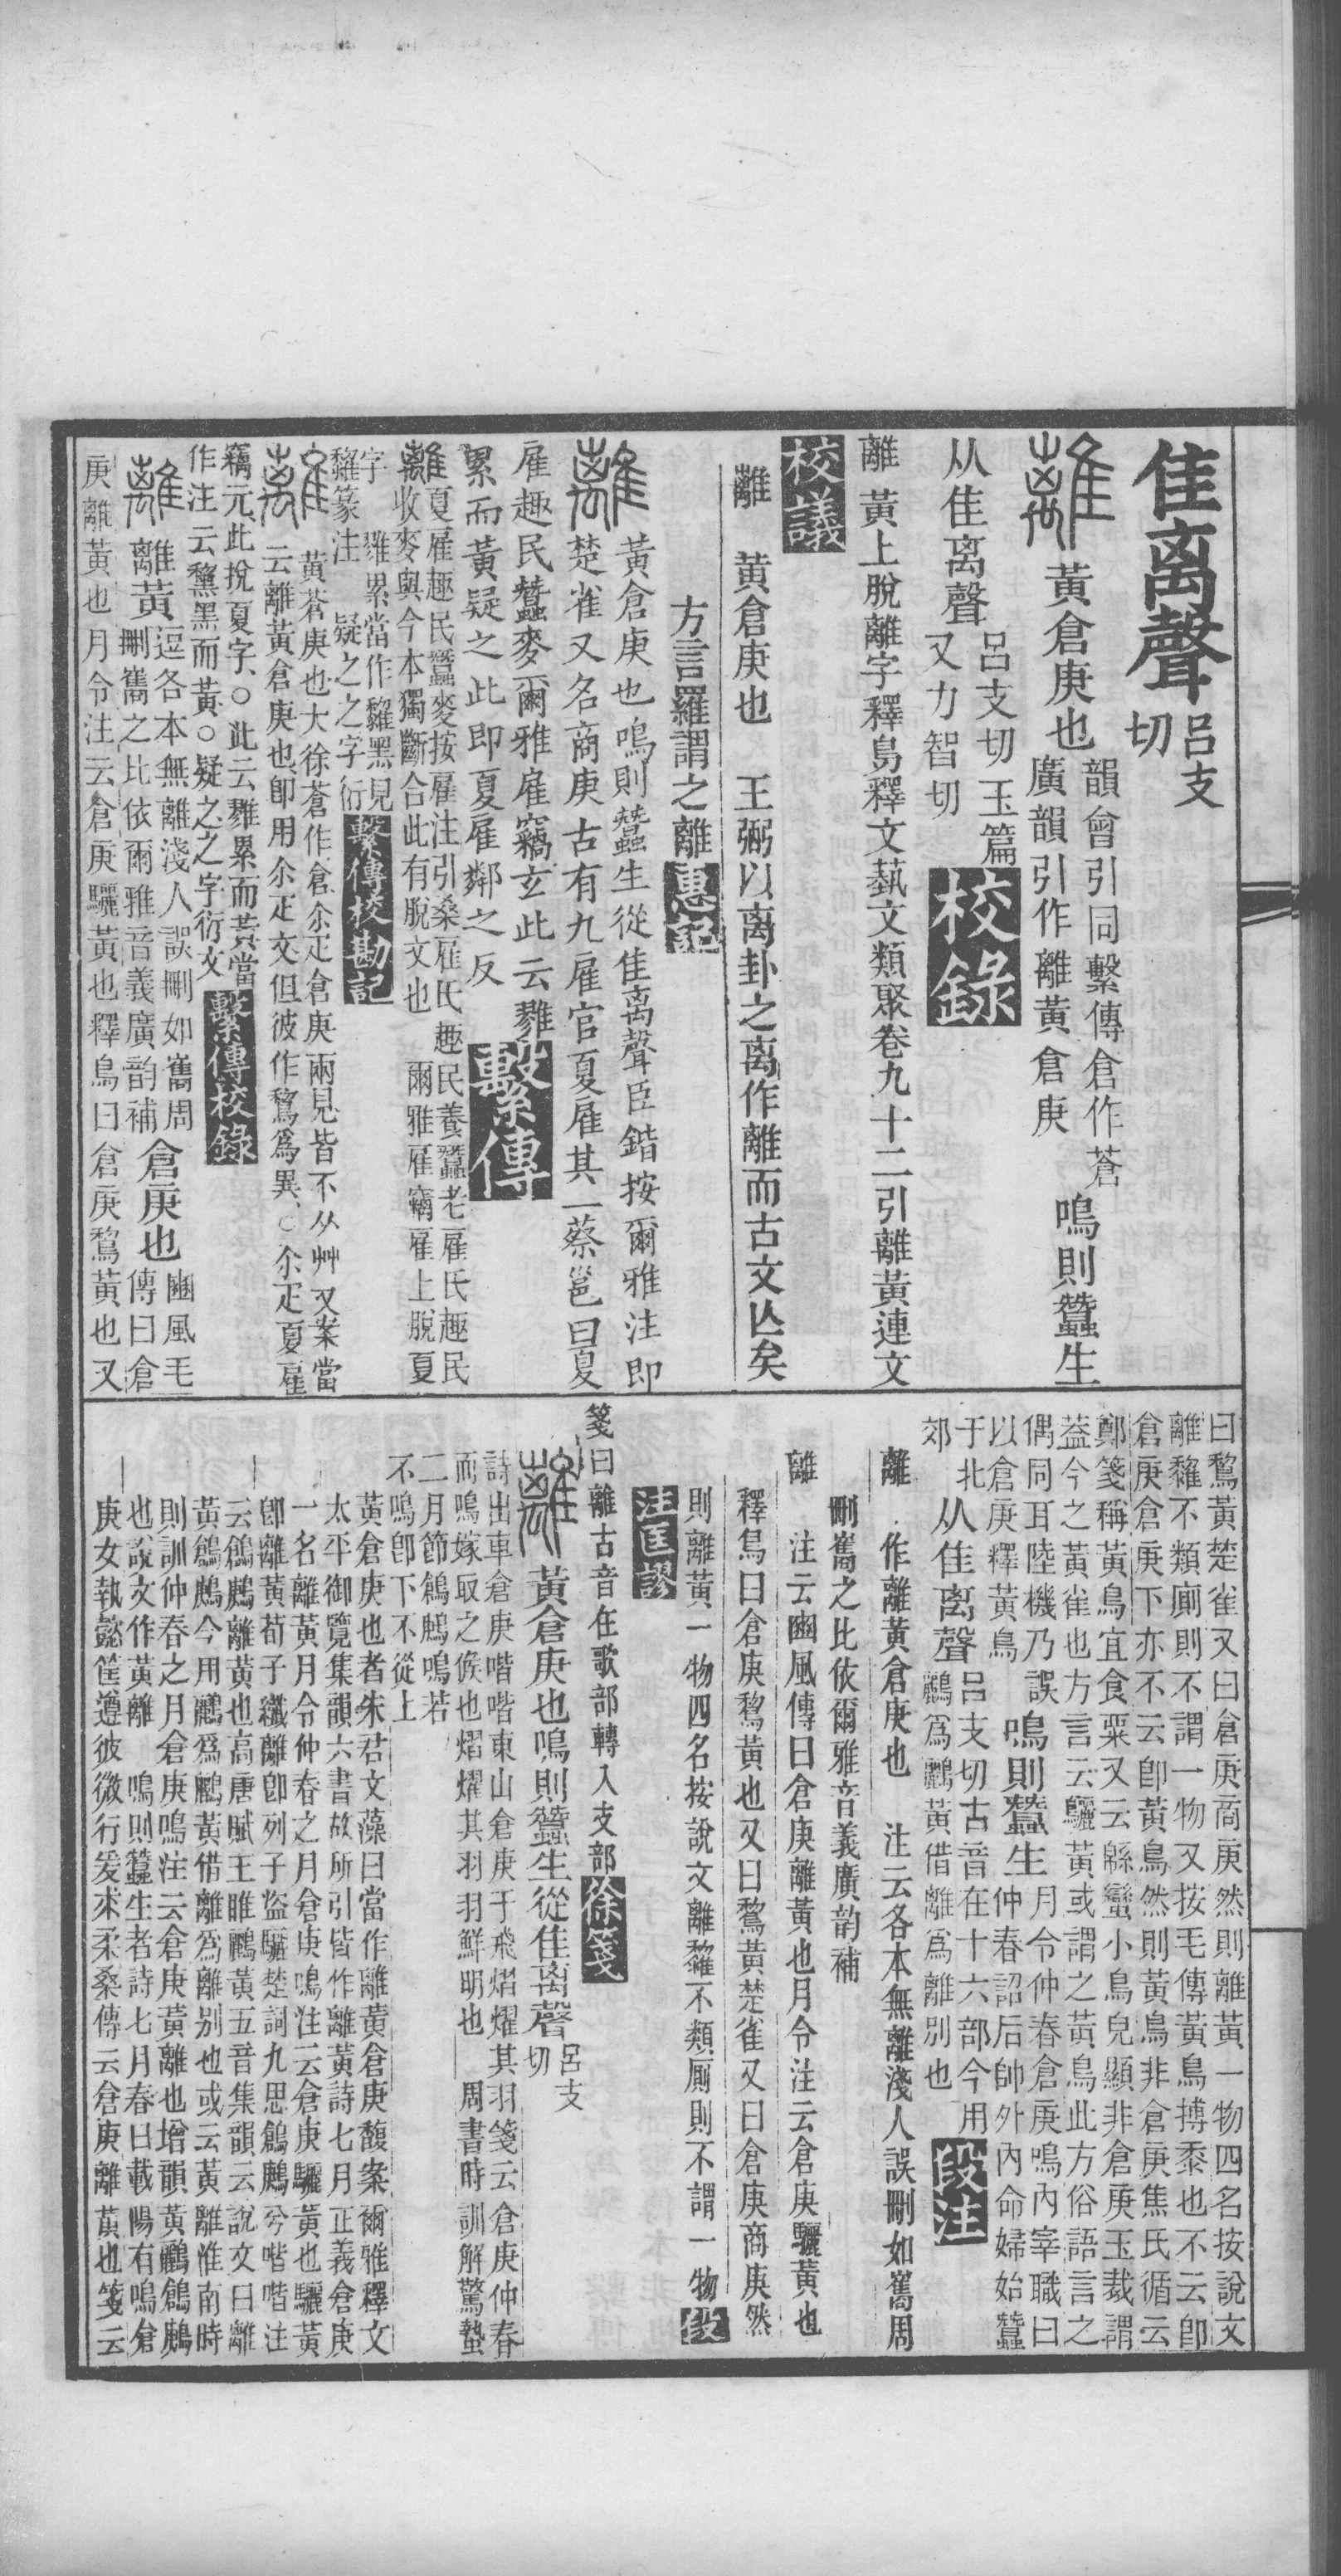 隹离聲呂支
切
離黃倉庚也韻會引同繫傳倉作蒼
廣韻引作離黃倉庚鳴則蠶生
从隹离聲呂支切玉篇
又力智切校錄
離黃上脫離字釋鳥釋文藝文類聚卷九十二引離黃連文
校議
離 黃倉庚也 王弼以离卦之离作離而古文亾矣
方言羅謂之離惠記
離黃倉庚也鳴則蠶生從隹离聲臣鍇按爾雅注即
楚雀又名商庚古有九雇官夏雇其一蔡邕曰夏
雇趣民蠶麥爾雅雇竊玄此云雡
累而黃疑之此即夏雇鄰之反繫傳
離夏雇趣民蠶麥按雇注引桑雇氏趣民養蠶老雇氏趣民
收麥與今本獨斷合此有脫文也 爾雅雇竊雇上脫夏
字 雡累當作黧黑見
黧篆注 疑之之字衍繫傳校勘記
離黃蒼庚也大徐蒼作倉尒疋倉庚兩見皆不从艸又案當
云離黃倉庚也卽用尒疋文但彼作鵹爲異○尒疋夏雇
竊元此挩夏字○此云雡累而黃當
作注云黧黑而黃○疑之之字衍文繫傳校錄
離離黃逗各本無離淺人誤刪如巂周
刪巂之比依爾雅音義廣韵補倉庚也豳風毛
傳曰倉
庚離黃也月令注云倉庚驪黃也釋鳥曰倉庚鵹黃也又
曰鵹黃楚雀又曰倉庚商庚然則離黃一物四名按說文
離雡不類廁則不謂一物又按毛傳黃鳥摶黍也不云卽
倉庚倉庚下亦不云卽黃鳥然則黃鳥非倉庚焦氏循云
鄭箋稱黃鳥宜食粟又云緜蠻小鳥皃顯非倉庚玉裁謂
葢今之黃雀也方言云驪黃或謂之黃鳥此方俗語言之
偶同耳陸機乃誤
以倉庚釋黃鳥鳴則蠶生月令仲春倉庚鳴內宰職曰
仲春詔后帥外內命婦始蠶
于北
郊从隹离聲呂支切古音在十六部今用
鸝爲鸝黃借離爲離別也段注
離 作離黃倉庚也 注云各本無離淺人誤刪如巂周
刪巂之比依爾雅音義廣韵補
離 注云豳風傳曰倉庚離黃也月令注云倉庚驪黃也
釋鳥曰倉庚鵹黃也又曰鵹黃楚雀又曰倉庚商庚然
則離黃一物四名按說文離雡不類廁則不謂一物段
注匡謬
箋曰離古音在歌部轉入支部徐箋
離黃倉庚也鳴則蠶生從隹离聲呂支
切
詩出車倉庚喈喈東山倉庚于飛熠燿其羽箋云倉庚仲春
而鳴嫁取之候也熠燿其羽羽鮮明也 周書時訓解驚蟄
二月節鶬鶊鳴若
不鳴卽下不從上
黃倉庚也者朱君文藻曰當作離黃倉庚馥案爾雅釋文
太平御覽集韻六書故所引皆作離黃詩七月正義倉庚
一名離黃月令仲春之月倉庚鳴注云倉庚驪黃也驪黃
卽離黃荀子纖離卽列子盜驪楚詞九思鶬鶊兮喈喈注
云鶬鶊離黃也高唐賦王雎鸝黃五音集韻云說文曰離
黃鶬鶊今用鸝爲鸝黃借離爲離别也或云黃離淮南時
則訓仲春之月倉庚鳴注云倉庚黃離也增韻黃鸝鶬鶊
也說文作黃離 鳴則蠶生者詩七月春日載陽有鳴倉
庚女執懿筐遵彼微行爰求柔桑傳云倉庚離黃也箋云